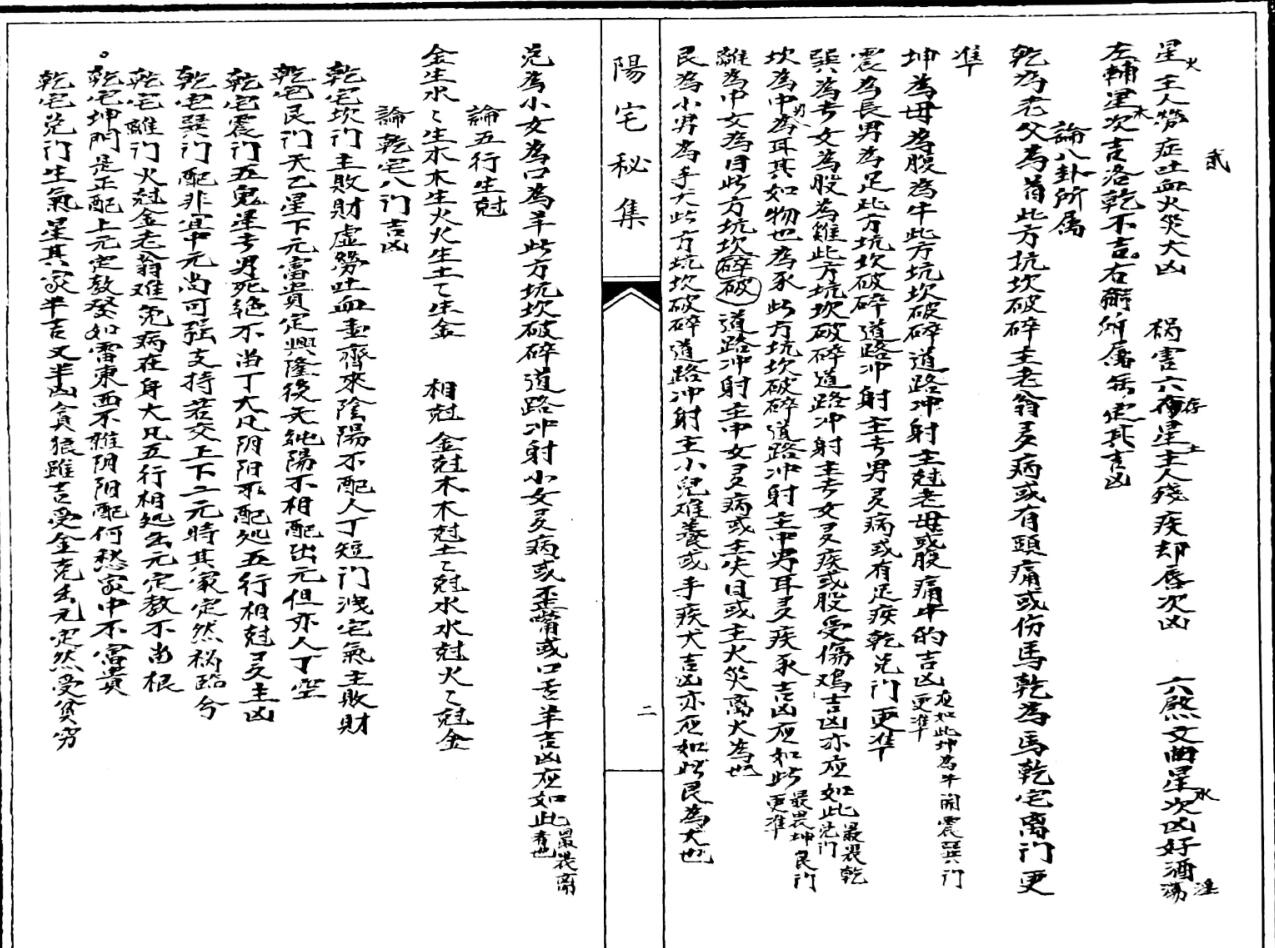 貳
星火主人癆症吐血火災大凶 禍害六存星土主人殘疾却唇次凶 六煞文曲星水次凶好酒淫蕩
左輔星木次吉洛乾不吉右弼所属無定其吉凶
論八卦所属
乾為老父為首此方坑坎破碎主老翁灵病或有頭痛或伤馬乾為馬乾宅离门更
准
坤為母為腹為牛此方坑坎破碎道路冲射主尅老母或腹痛牛的吉凶應如此坤為牛開震巽门更准
震為長男為足此方坑坎破碎道路冲射主长男灵病或有足疾乾兑门更准
巽為长女為股為雞此方坑坎破碎道路冲射主长女灵疾或股受傷鸡吉凶亦应如此最畏乾兑门
坎為中男為耳其如物也為豕此方坑坎破碎道路冲射主中男耳灵疾豕吉凶应如此最畏坤艮门更准
離為中女為目此方坑坎碎破道路冲射主中女灵病或主失目或主火災离火為也
艮為小男為手犬此方坑坎破碎道路冲射主小兒难養或手疾犬吉凶亦应如此艮為犬也
陽宅秘集
二
兑為小女為口為羊此方坑坎破碎道路冲射小女灵病或歪嘴或口舌羊吉凶应如此最畏离者也
論五行生尅
金生水水生木木生火火生土土生金 相尅 金尅木木尅土土尅水水尅火火尅金
論乾宅八门吉凶
乾宅坎门主敗財虚勞吐血壹齊來陰陽不配人丁短门洩宅氣主敗財
乾宅艮门天乙星下元富貴定興隆後天純陽不相配出元但亦人丁空
乾宅震门五鬼星长男死绝不当丁大凡阴阳不配处五行相尅灵主凶
乾宅巽门配非宜中元尚可强支持若交上下二元時其家定然祸臨兮
乾宅離门火尅金老翁难免病在身大凡五行相处出元定教不当根
乾宅坤門是正配上元定教發如雷東西不雜阴阳配何愁家中不富貴
乾宅兑门生氣星其家半吉又半凶貪狼雖吉受金克出元定然受貧穷